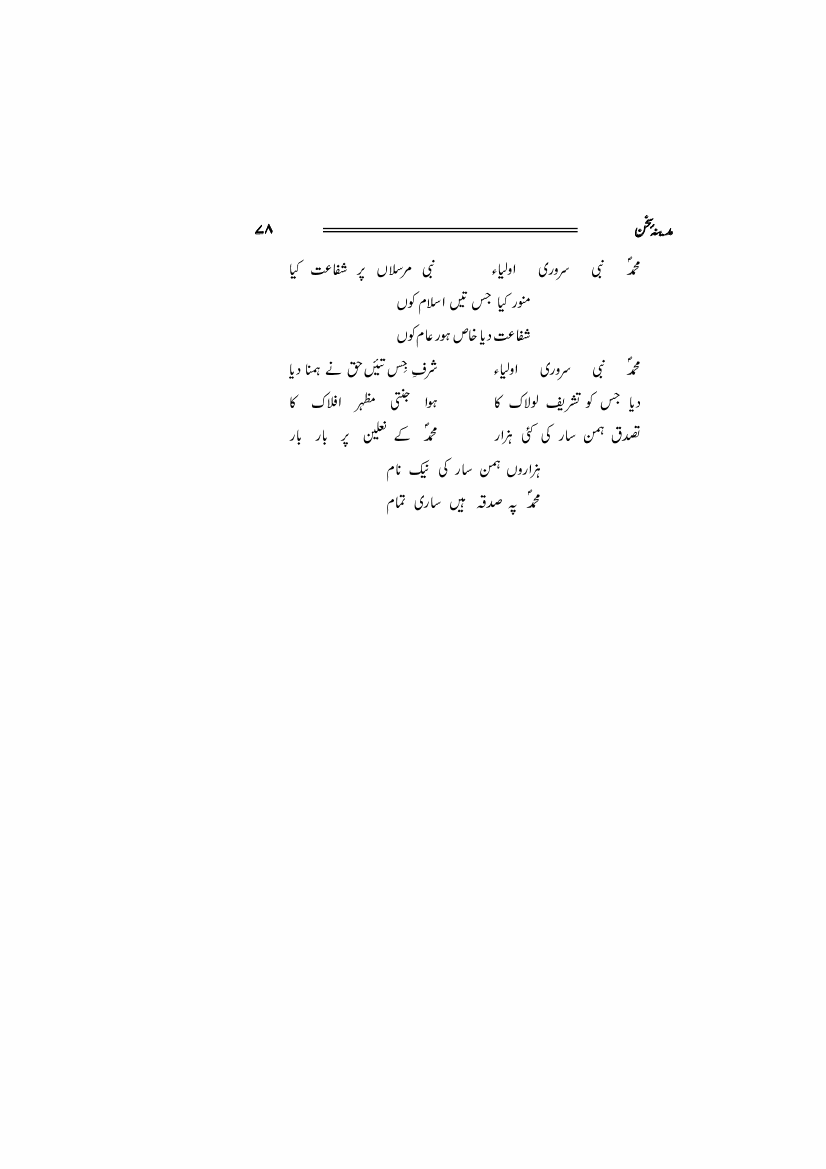 مدینۂ سخن ۷۸
محمدؐ نبی سروری اولیاء نبی مرسلاں پر شفاعت کیا
منور کیا جس تیں اسلام کوں
شفاعت دیا خاص ہور عام کوں
محمدؐ نبی سروری اولیاء شرفِ جِس تیئں حق نے ہمنا دیا
دیا جس کو تشریف لولاک کا ہوا جنتی مظہر افلاک کا
تصدق ہمن سار کی کئی ہزار محمدؐ کے نعلین پر بار بار
ہزاروں ہمن سار کی نیک نام
محمدؐ پہ صدقہ ہیں ساری تمام